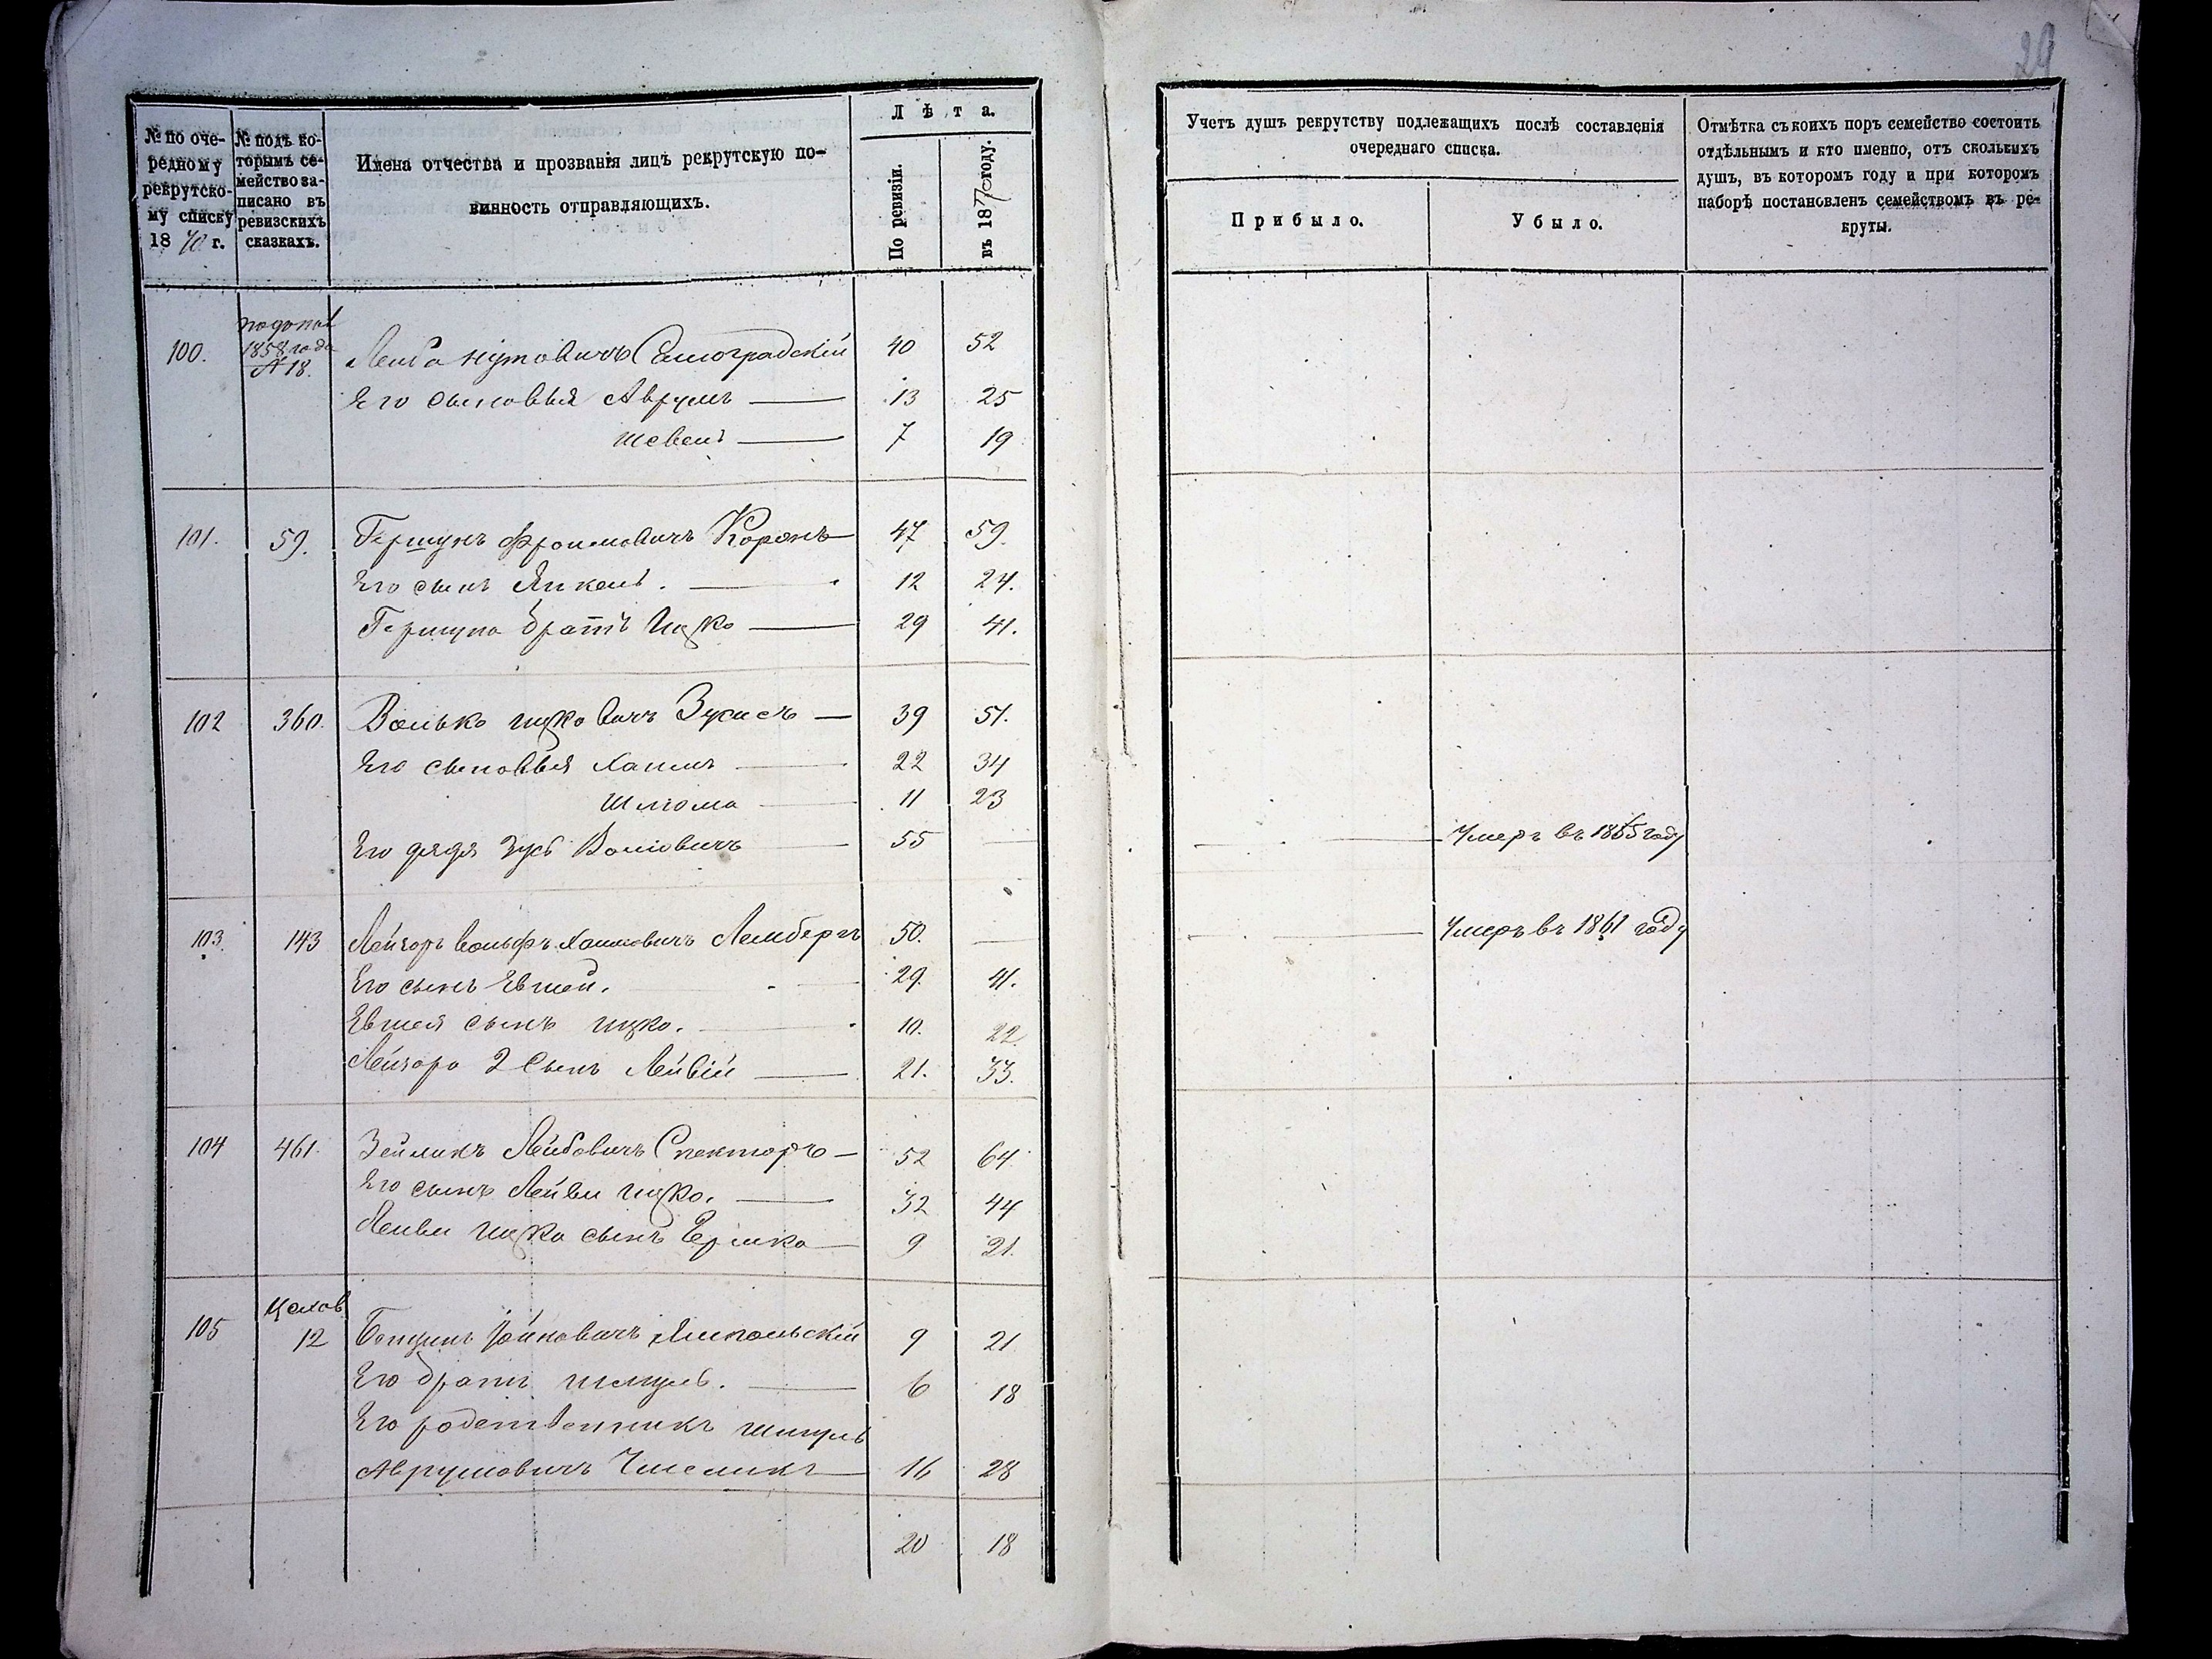 29
№ по оче-
редному
рекрутско-
му списку
1870 г.
№ подъ ко-
торымъ се-
мейство за-
писано въ
ревизскихъ
сказкахъ.
Имена отчества и прозванія лицъ рекрутскую по-
винность отправляющихъ.
Лѣта.
По ревизіи.
въ 1870 году.
Учетъ душъ рекрутству подлежащихъ послѣ составленія
очереднаго списка.
Прибыло.
Убыло.
Отмѣтка съ коихъ поръ семейство состоитъ
отдѣльнымъ и кто именно, отъ сколькихъ
душъ, въ которомъ году и при которомъ
наборѣ поставленъ семействомъ въ ре-
круты.
1858 года
№ 18.
100. Лейба Нутовичъ 40 52
Его сыновья Аврумъ 13 25
7 19
101. 59. Гершунъ Фроимовичъ Коронъ 47 59.
Его сынъ Янкель. 12 24.
Гершуна братъ Ицко 29 41.
102 360. Волько Ицковичъ Зусисъ 39 51.
Его сыновья Хаимъ 22 34
Шлома 11 23
Его дядя Зусь 55 Умеръ въ 1865 году
103. 143 Лейзоръ Вольфъ Хаимовичъ Лембергъ 50. Умеръ въ 1861 году
Его сынъ Евшей. 29. 41.
Евшея сынъ Ицко. 10. 22.
Лейзора 2 сынъ Лейвій 21. 33.
104 461. Зейликъ Лейбовичъ Спекторъ 52 64
Его сынъ Лейви Ицко. 32 44
Лейви Ицка сынъ Ершко 9 21.
Цехов
105 12 Іойновичъ Ямпольскій 9 21
Его братъ Шмуль. 6 18
Его родственникъ Шмуль
Аврумовичъ 16 28
20 18